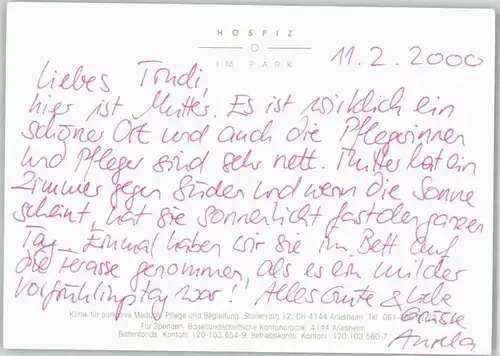 HOSPIZ
IM PARK
11.2.2000
Liebes Trudi,
hier ist Mutter. Es ist wirklich ein
schöner Ort und auch die Pflegerinnen
und Pfleger sind sehr nett. Mutter hat ein
Zimmer gegen Süden und wenn die Sonne
scheint, hat sie Sonnenlicht fast den ganzen
Tag. Einmal haben wir sie im Bett auf
die Terasse genommen, als es ein milder
Vorfrühlingstag war! Alles Gute & liebe
Grüsse
Klinik für palliative Medizin, Pflege und Begleitung. Stollenrain 12, CH 4144 Arlesheim Tel. 061
Für Spenden: Basellandschaftliche Kantonalbank, 4144 Arlesheim
Bettenfonds: Kontonr. 120.103.654-9. Betriebskonto: Kontonr. 120.103.560-7